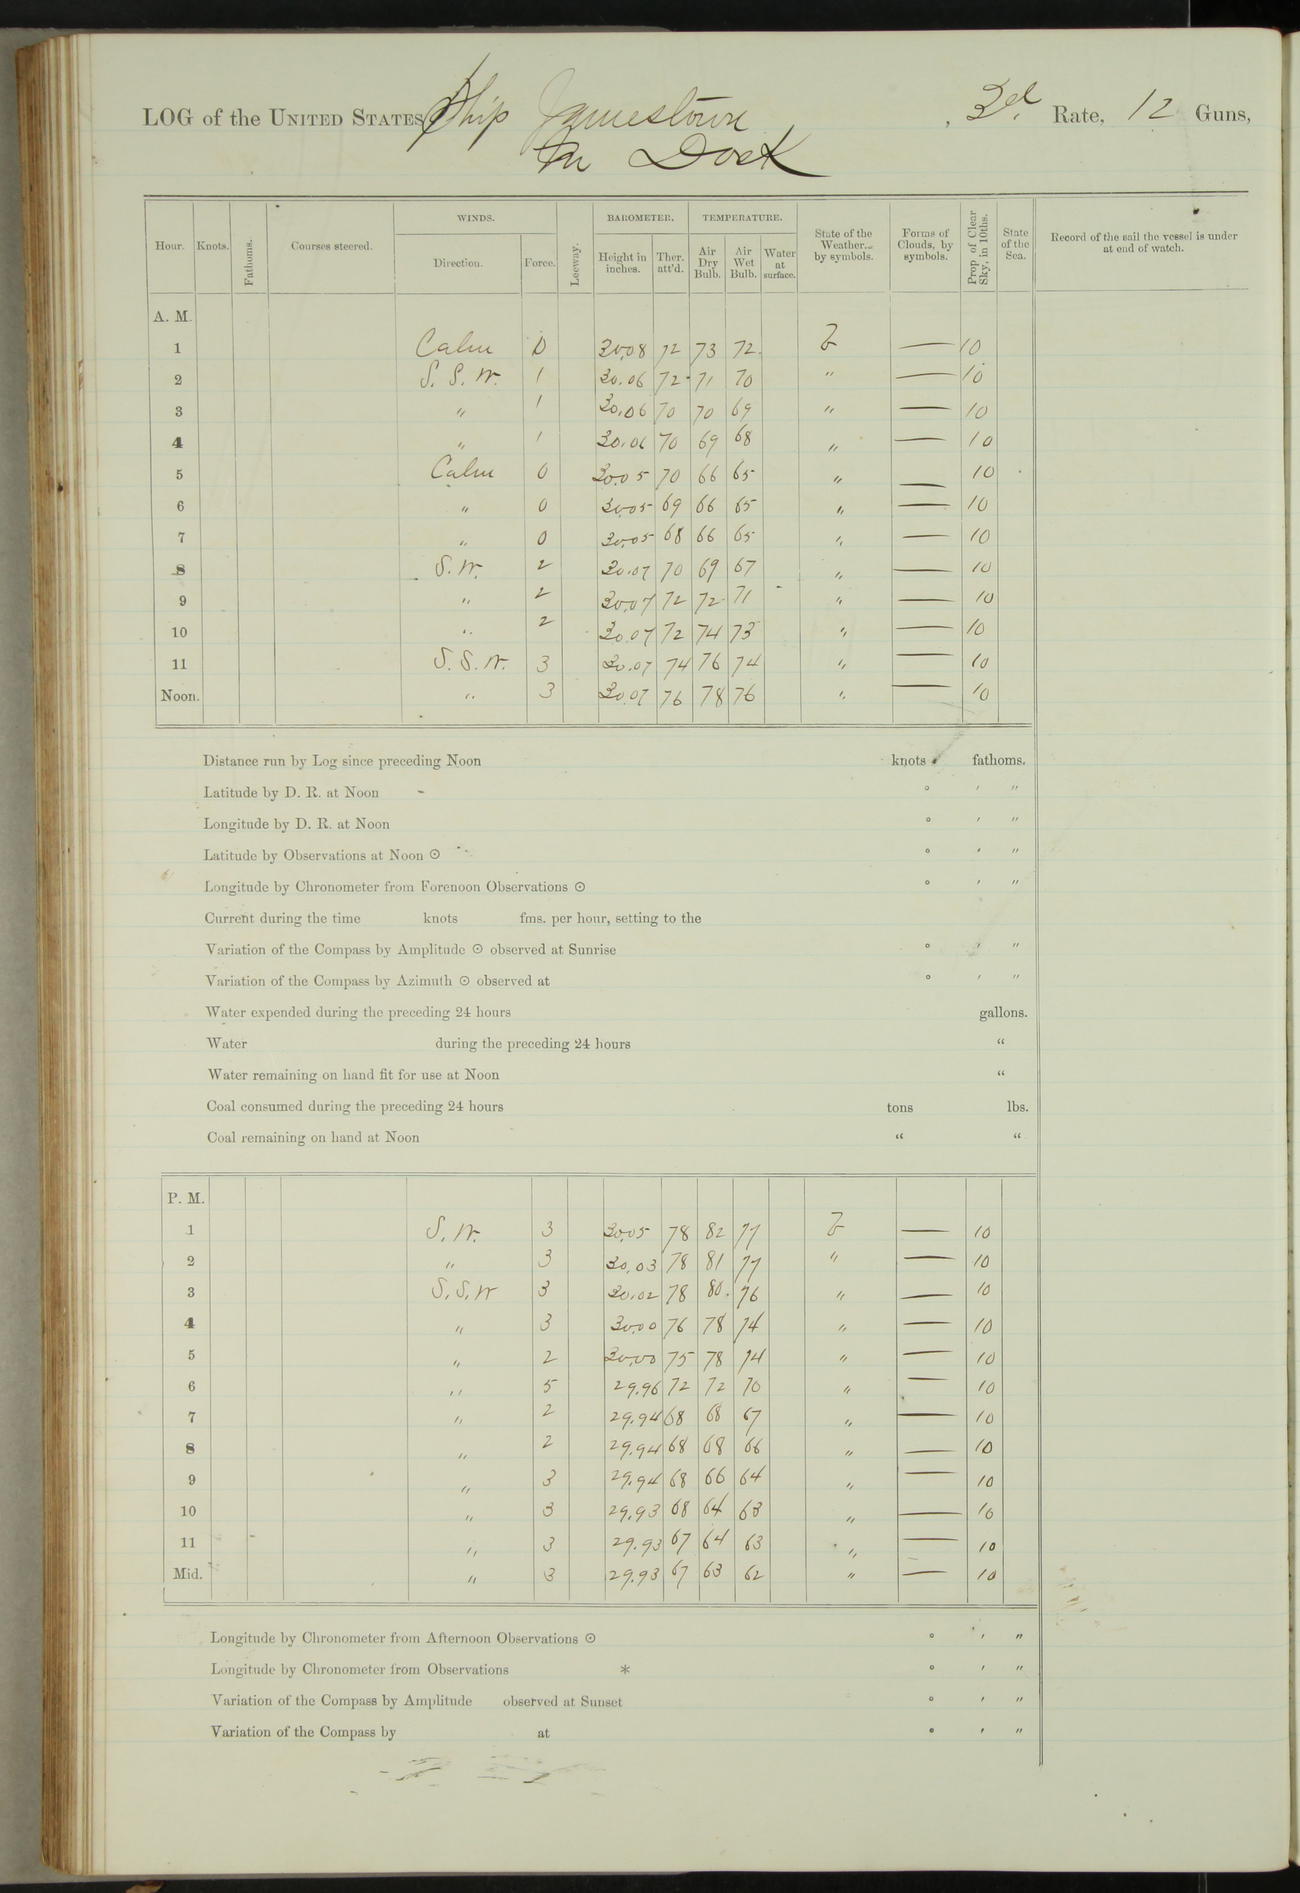 LOG of the UNITED STATES Ship Jamestown, 3d. Rate, 12 Guns,
In Dock
WINDS. BAROMETER. TEMPERATURE.
Hour. Knots. Fathoms. Courses steered. Direction. Force. Leeway. Height in inches. Ther. att'd. Air Dry Bulb. Air Wet Bulb. Water at surface. State of the Weather by symbols. Forms of Clouds, by symbols. Prop of Clear Sky, in 10ths. State of the Sea. Record of the sail the vessel is under at end of watch.
A. M.
1 Calm 0 30.08 72 73 72 b — 10
2 S. S. W. 1 30.06 72 71 70 " — 10
3 " 1 30.06 70 70 69 " — 10
4 " 1 30.06 70 69 68 " — 10
5 Calm 0 30.05 70 66 65 " — 10
6 " 0 30.05 69 66 65 " — 10
7 " 0 30.05 68 66 65 " — 10
8 S. W. 2 30.07 70 69 67 " — 10
9 " 2 30.07 72 72 71 " — 10
10 " 2 30.07 72 74 73 " — 10
11 S. S. W. 3 30.07 74 76 74 " — 10
Noon. " 3 30.07 76 78 76 " — 10
Distance run by Log since preceding Noon knots fathoms.
Latitude by D. R. at Noon ° ′ ″
Longitude by D. R. at Noon ° ′ ″
Latitude by Observations at Noon ☉ ° ′ ″
Longitude by Chronometer from Forenoon Observations ☉ ° ′ ″
Current during the time knots fms. per hour, setting to the
Variation of the Compass by Amplitude ☉ observed at Sunrise ° ′ ″
Variation of the Compass by Azimuth ☉ observed at ° ′ ″
Water expended during the preceding 24 hours gallons.
Water during the preceding 24 hours “
Water remaining on hand fit for use at Noon “
Coal consumed during the preceding 24 hours tons lbs.
Coal remaining on hand at Noon “ “
P. M.
1 S. W. 3 30.05 78 82 77 b — 10
2 " 3 30.03 78 81 77 " — 10
3 S. S. W 3 30.02 78 80. 76 " — 10
4 " 3 30.00 76 78 74 " — 10
5 " 2 30.00 75 78 74 " — 10
6 " 5 29.96 72 72 70 " — 10
7 " 2 29.94 68 68 67 " — 10
8 " 2 29.94 68 68 66 " — 10
9 " 3 29.94 68 66 64 " — 10
10 " 3 29.93 68 64 63 " — 10
11 " 3 29.93 67 64 63 " — 10
Mid. " 3 29.93 67 63 62 " — 10
Longitude by Chronometer from Afternoon Observations ☉ ° ′ ″
Longitude by Chronometer from Observations * ° ′ ″
Variation of the Compass by Amplitude observed at Sunset ° ′ ″
Variation of the Compass by at ° ′ ″